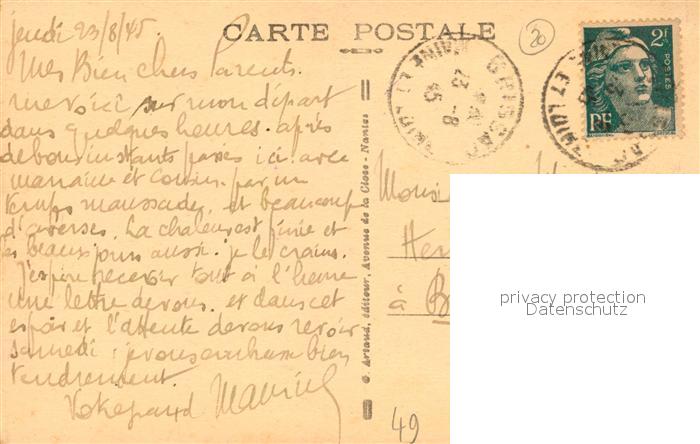 jeudi 23/8/45.
CARTE POSTALE
20
Mes Bien chers Parents.
me voici sur mon départ
dans quelques heures. après
de bons instants passés ici avec
marraine et Cousin. par un
temps maussade, et beaucoup
d'averses. La chaleur est finie et
les beaux jours aussi. je le crains.
J'espère recevoir tout à l'heure
une lettre de vous. et dans cet
espoir et l'attente de vous revoir
samedi, je vous embrasse bien
tendrement.
Votre grand Maurice
G. Artaud, éditeur, Avenue de la Close - Nantes
23 -8
45
MAINE ET LOIRE
2F
POSTES
RF
ET LOIRE
Monsi
Hen
à B
privacy protection
Datenschutz
49